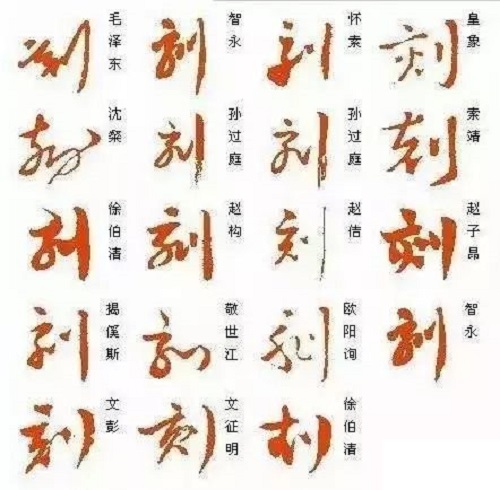 刻
毛泽东
刻
智永
刻
怀素
刻
皇象
刻
沈粲
刻
孙过庭
刻
孙过庭
刻
索靖
刻
徐伯清
刻
赵构
刻
赵佶
刻
赵子昂
刻
揭傒斯
刻
敬世江
刻
欧阳询
刻
智永
刻
文彭
刻
文征明
刻
徐伯清